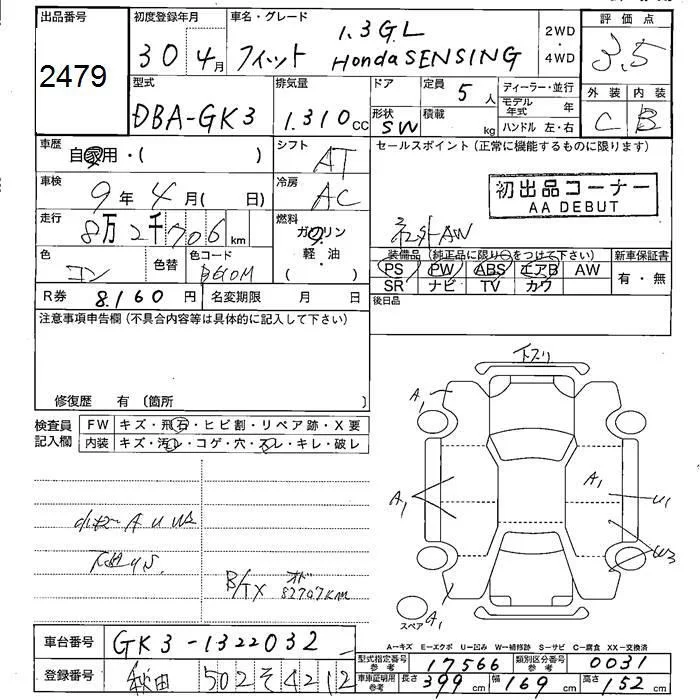 出品番号
2479
初度登録年月
30年4月
車名・グレード
フィット
1.3GL
Honda SENSING
2WD
4WD
評価点
3.5
外装 内装
C B
型式
DBA-GK3
排気量
1.310cc
ドア
形状
SW
定員
5人
積載
kg
ディーラー・並行
モデル年式 年
ハンドル 左・右
車歴
自家用・( )
シフト
AT
セールスポイント(正常に機能するものに限ります)
初出品コーナー
AA DEBUT
車検
9年4月( 日)
冷房
AC
社外AW
走行
8万2千706km
燃料
ガソリン
軽・油
( )
装備品(純正品に限り○をつけて下さい)
新車保証書
PS PW ABS エアB AW
SR ナビ TV カワ
有・無
色
コン
色替
色コード
B610M
後日品
R券
8,160円
名変期限 月 日
注意事項申告欄(不具合内容等は具体的に記入して下さい)
修復歴 有(箇所
検査員記入欄
FW キズ・飛石・ヒビ割・リペア跡・X要
内装 キズ・汚レ・コゲ・穴・スレ・キレ・破レ
下スリ
A1
A1
A1
U1
W3
A1
スペア
A U W2
B/TX オド
82707km
A−キズ E−エクボ U−凹み W−補修跡 S−サビ C−腐食 XX−交換済
車台番号
GK3-1322032
型式指定番号参考
17566
類別区分番号参考
0031
登録番号
秋田 502 そ 4212
車車証明用参考
長さ 399cm
幅 169cm
高さ 152cm